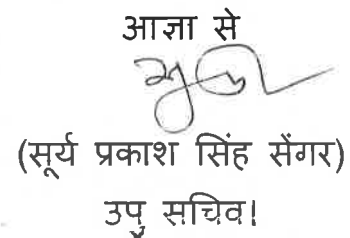 आज्ञा से
(सूर्य प्रकाश सिंह सेंगर)
उपु सचिव।